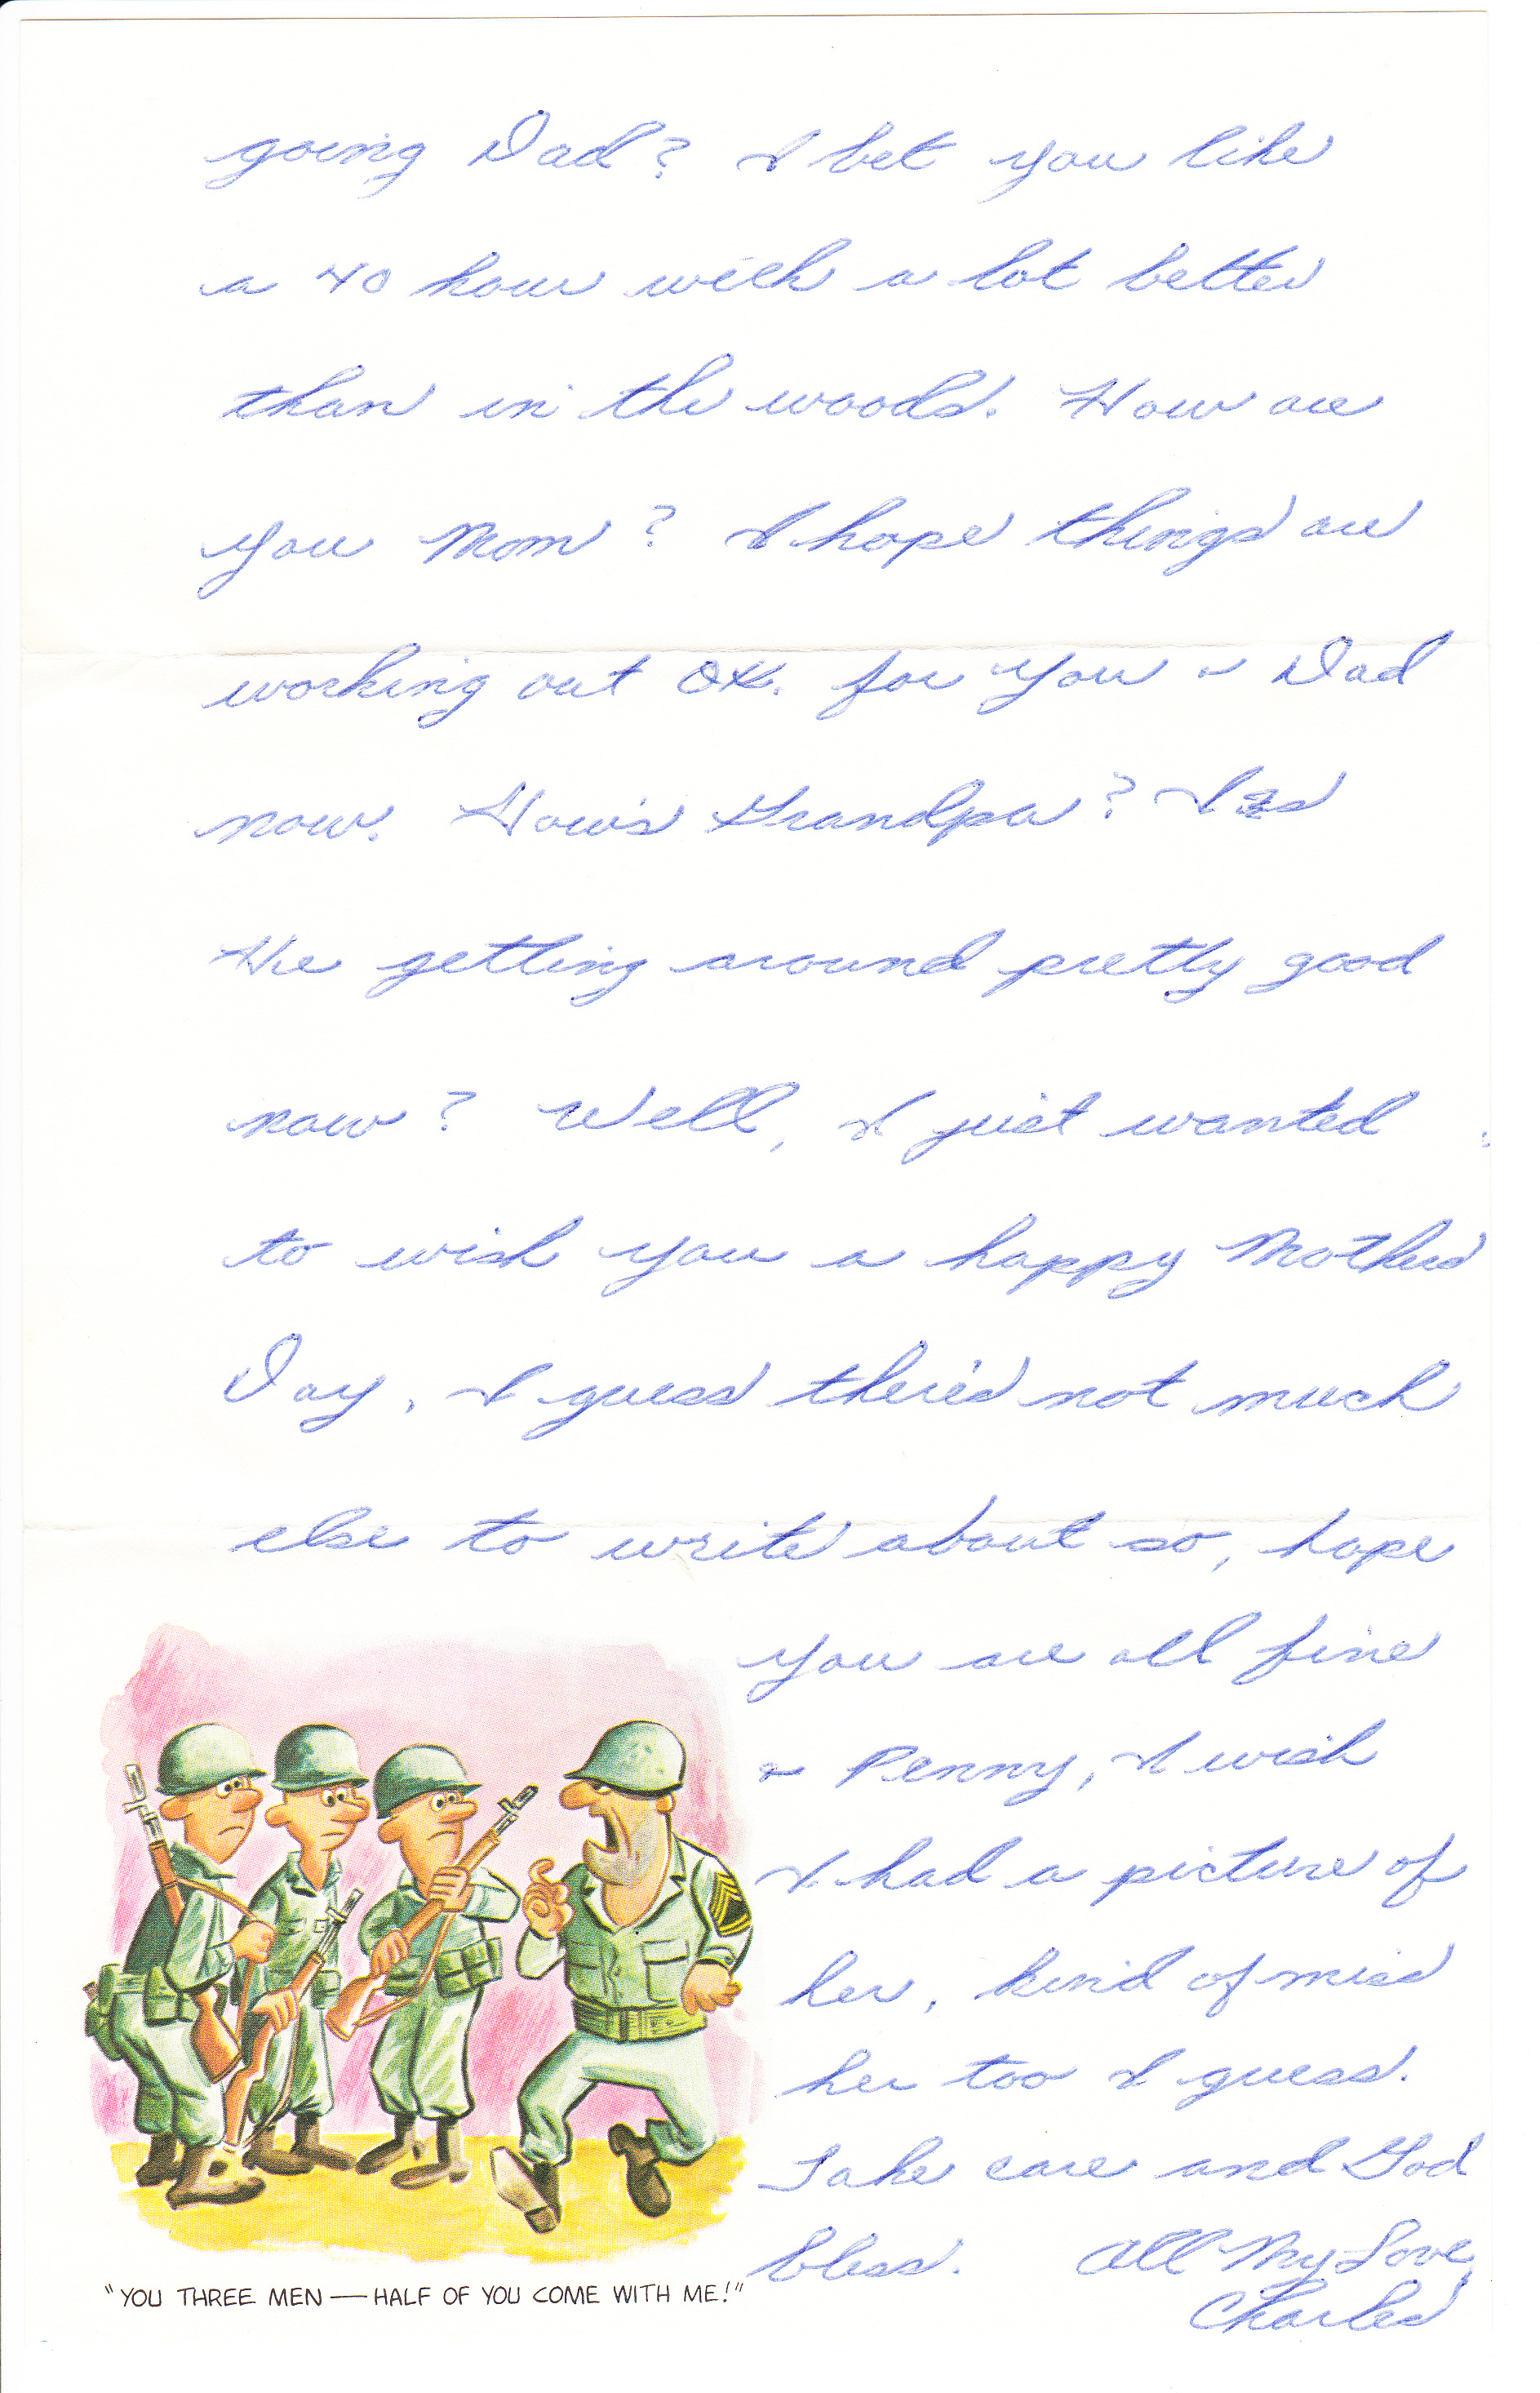 going Dad? I bet you like
a 40 hour week a lot better
than in the woods. How are
you Mom? I hope things are
working out OK. for you & Dad
now. How's Grandpa? Is
He getting around pretty good
now? Well, I just wanted
to wish you a happy Mothers
Day, I guess there's not much
else to write about so, hope
you are all fine
& Penny, I wish
I had a picture of
her, kind of miss
her too I guess.
Take care and God
bless. All My Love,
Charles
"YOU THREE MEN — HALF OF YOU COME WITH ME!"